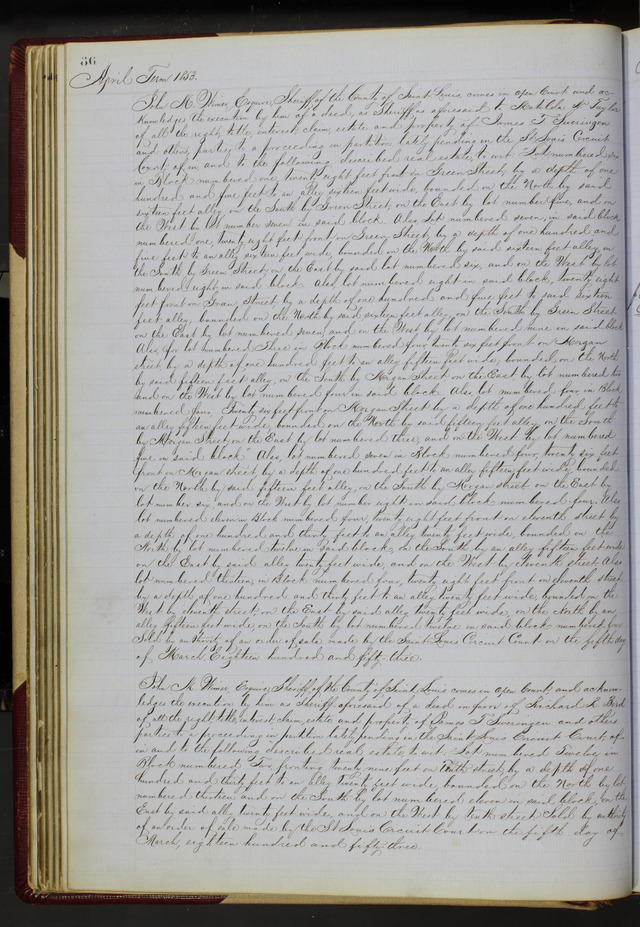 86
April Term 1853.
John M. Wimer, Esquire, Sheriff of the County of Saint Louis comes in open Court and ac-
knowledges the execution by him of a deed, as Sheriff as aforesaid to Matilda Taylor
of all the right, title, interest, claim, estate and property of James T Sweringen
and others, parties to a proceeding in partition lately pending in the St Louis Circuit
Court, of in and to the following described real estate, to wit: Lot numbered six
in Block numbered one, twenty eight feet front on Green Street, by a depth of one
hundred and five feet to an alley sixteen feet wide, bounded on the North by said
sixteen feet alley, on the South by Green Street, on the East by lot number five, and on
the West by lot number seven in said block. Also Lot numbered seven, in said block
numbered one, twenty eight feet front on Green Street, by a depth of one hundred and
five feet to an alley sixteen feet wide, bounded on the North by said sixteen feet alley, on
the South by Green Street, on the East by said lot numbered six, and on the West by lot
numbered eight, in said block. Also, lot numbered eight in said block, twenty eight
feet front on Green Street by a depth of one hundred and five feet to said sixteen
feet alley, bounded on the North by said sixteen feet alley, on the South by Green Street
on the East by lot numbered seven, and on the West by lot numbered nine in said block
Also, lot numbered Three in Block numbered four twenty six feet front on Morgan
street, by a depth of one hundred feet to an alley fifteen feet wide, bounded, on the North
by said fifteen feet alley, on the South by Morgan Street on the East by lot numbered two
and on the West by lot numbered four in said block. Also lot numbered four in Block
numbered four, Twenty six feet front on Morgan Street by a depth of one hundred feet to
an alley fifteen feet wide, bounded on the North by said fifteen feet alley, on the South
by Morgan Street, on the East by lot numbered three, and on the West by lot numbered
five in said block. Also, lot numbered seven in Block numbered four, twenty six feet
front on Morgan street, by a depth of one hundred feet to an alley fifteen feet wide, bounded
on the North by said fifteen feet alley, on the South by Morgan street on the East by
lot number six, and on the West by lot number eight in said block numbered four. Also
lot numbered eleven in Block numbered four, twenty eight feet front on eleventh street by
a depth of one hundred and thirty feet to an alley twenty feet wide, bounded on the
North by lot numbered twelve in said block, on the South by an alley fifteen feet wide
on the East by said alley twenty feet wide, and on the West by eleventh street. Also
lot numbered thirteen, in Block numbered four, twenty eight feet front on eleventh street
by a depth of one hundred and thirty feet to an alley twenty feet wide, bounded on the
West by eleventh street, on the East by said alley twenty feet wide, on the North by an
alley fifteen feet wide, on the South by lot numbered twelve in said block numbered four
Sold by authority of an order of sale made by the Saint Louis Circuit Court on the fifth day
of March, Eighteen hundred and fifty three.
John M. Wimer, Esquire, Sheriff of the County of Saint Louis comes in open Court and acknow-
ledges the execution by him as Sheriff aforesaid of a deed in favor of Richard L.
of all the right, title, interest, claim, estate, and property of James T Sweringen and others
parties to a proceeding in partition lately pending in the Saint Louis Circuit Court, of
in and to the following described real estate, to wit: Lot numbered Twelve in
Block numbered Two, fronting twenty nine feet on Tenth street, by a depth of one
hundred and thirty feet to an alley twenty feet wide, bounded on the North by lot
numbered thirteen and on the South by lot numbered eleven in said block, on the
East by said alley twenty feet wide, and on the West by Tenth street. Sold by authority
of an order of sale made by the St Louis Circuit Court on the fifth day of
March, eighteen hundred and fifty three.